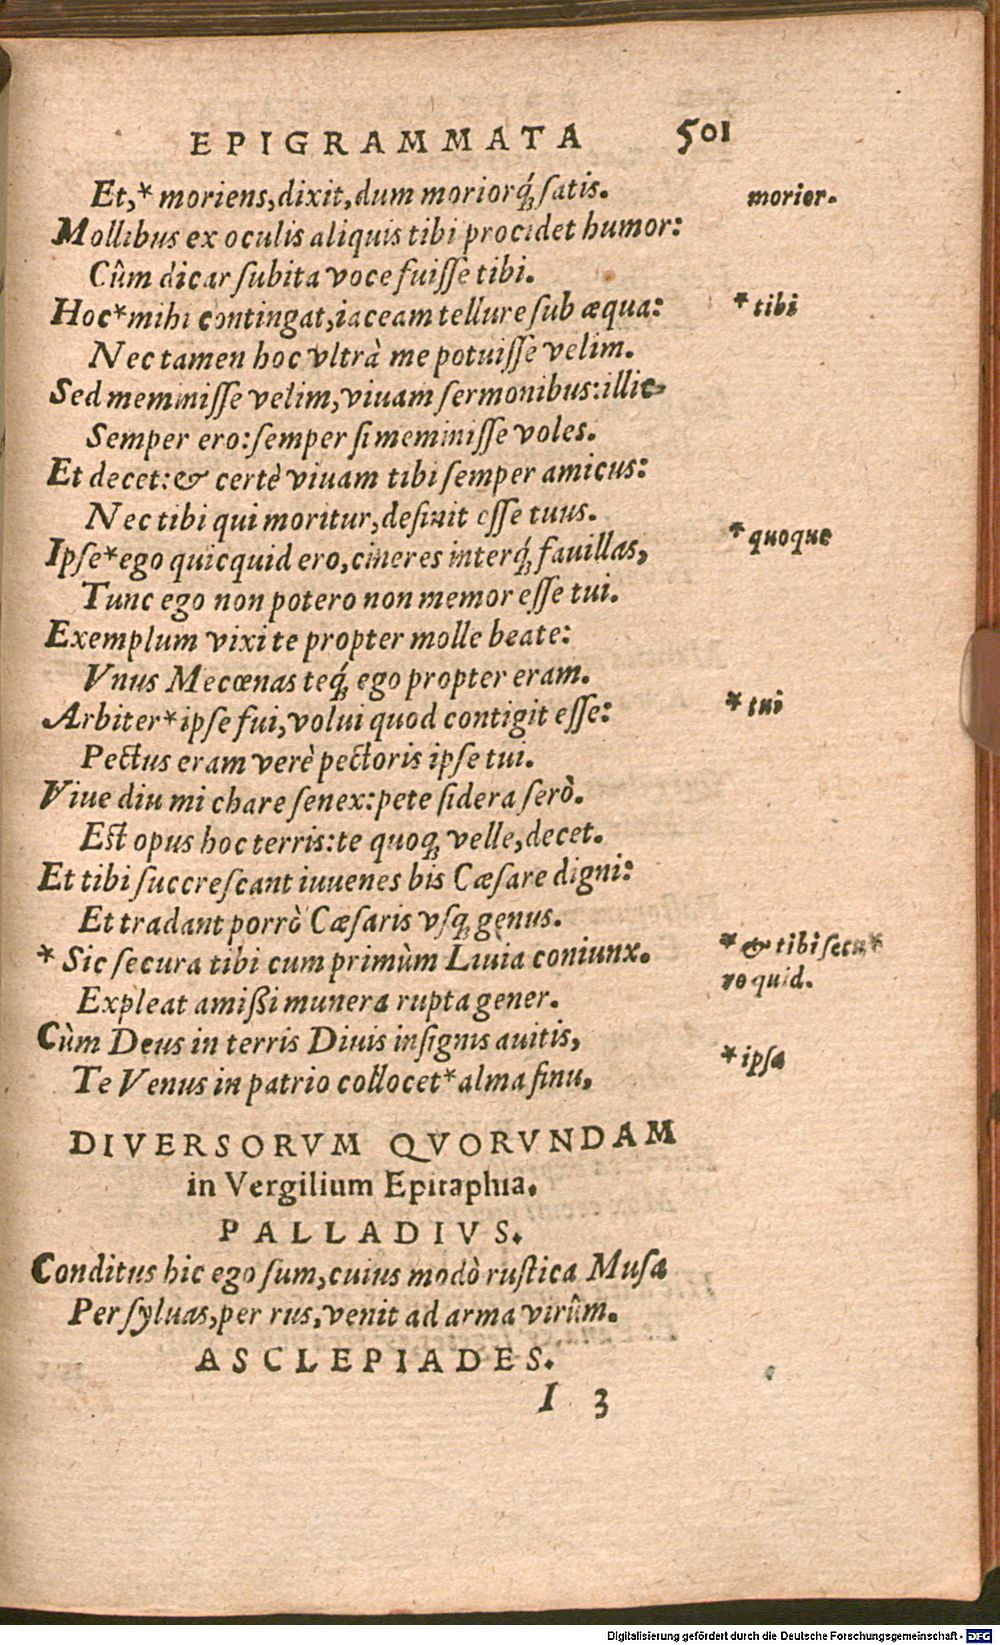 EPIGRAMMATA 501
Et,* moriens,dixit,dum moriorq́; satis. morier.
Mollibus ex oculis aliquis tibi procidet humor:
Cûm dicar subita voce fuiſſe tibi.
Hoc*mihi contingat,iaceam tellure sub æqua: * tibi
Nec tamen hoc vltrà me potuiſſe velim.
Sed meminiſſe velim,viuam sermonibus:illic
Semper ero:semper si meminiſſe voles.
Et decet:& certè viuam tibi semper amicus:
Nec tibi qui moritur,desinit eſſe tuus.
Ipse*ego quicquid ero,cineres interq́; fauillas, * quoque
Tunc ego non potero non memor eſſe tui.
Exemplum vixi te propter molle beate:
Vnus Mecœnas teq́; ego propter eram.
Arbiter*ipse fui,volui quod contigit eſſe: * tui
Pectus eram verè pectoris ipse tui.
Viue diu mi chare senex:pete sidera serò.
Est opus hoc terris:te quoq; velle,decet.
Et tibi succrescant iuuenes bis Cæsare digni:
Et tradant porrò Cæsaris vsq; genus.
* Sic secura tibi cum primùm Liuia coniunx. * & tibi secu*
Expleat amißi munera rupta gener. ro quid.
Cùm Deus in terris Diuis insignis auitis,
Te Venus in patrio collocet*alma sinu, * ipsa
DIVERSORVM QVORVNDAM
in Vergilium Epitaphia.
PALLADIVS.
Conditus hic ego sum,cuius modò rustica Musa
Per syluas,per rus,venit ad arma virûm.
ASCLEPIADES.
I 3
Digitalisierung gefördert durch die Deutsche Forschungsgemeinschaft - DFG